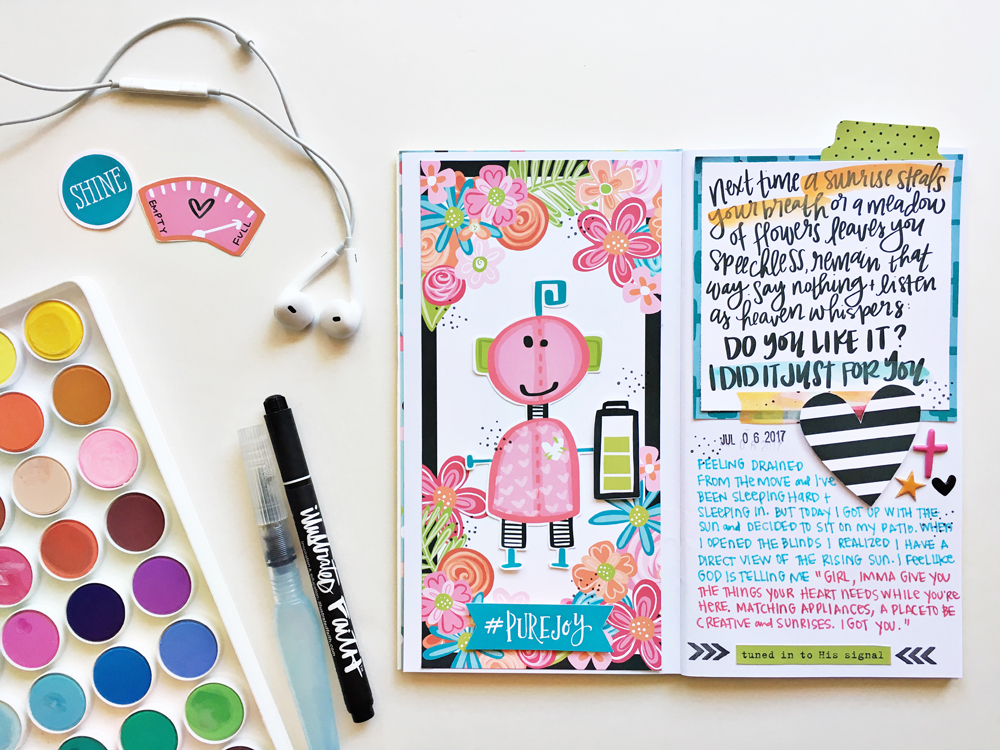 SHINE
EMPTY
FULL
illustrated Faith
#PUREJOY
Next time a sunrise steals
your breath or a meadow
of flowers leaves you
speechless, remain that
way say nothing + listen
as heaven whispers:
DO YOU LIKE IT?
I DID IT JUST FOR YOU.
JUL 06 2017
FEELING DRAINED
FROM THE MOVE and I'VE
BEEN SLEEPING HARD +
SLEEPING IN. BUT TODAY I GOT UP WITH THE
SUN and DECIDED TO SIT ON MY PATIO. WHEN
I OPENED THE BLINDS I REALIZED I HAVE A
DIRECT VIEW OF THE RISING SUN. I FEEL LIKE
GOD IS TELLING ME "GIRL, IMMA GIVE YOU
THE THINGS YOUR HEART NEEDS WHILE YOU'RE
HERE. MATCHING APPLIANCES, A PLACE TO BE
CREATIVE and SUNRISES. I GOT YOU."
tuned in to His signal